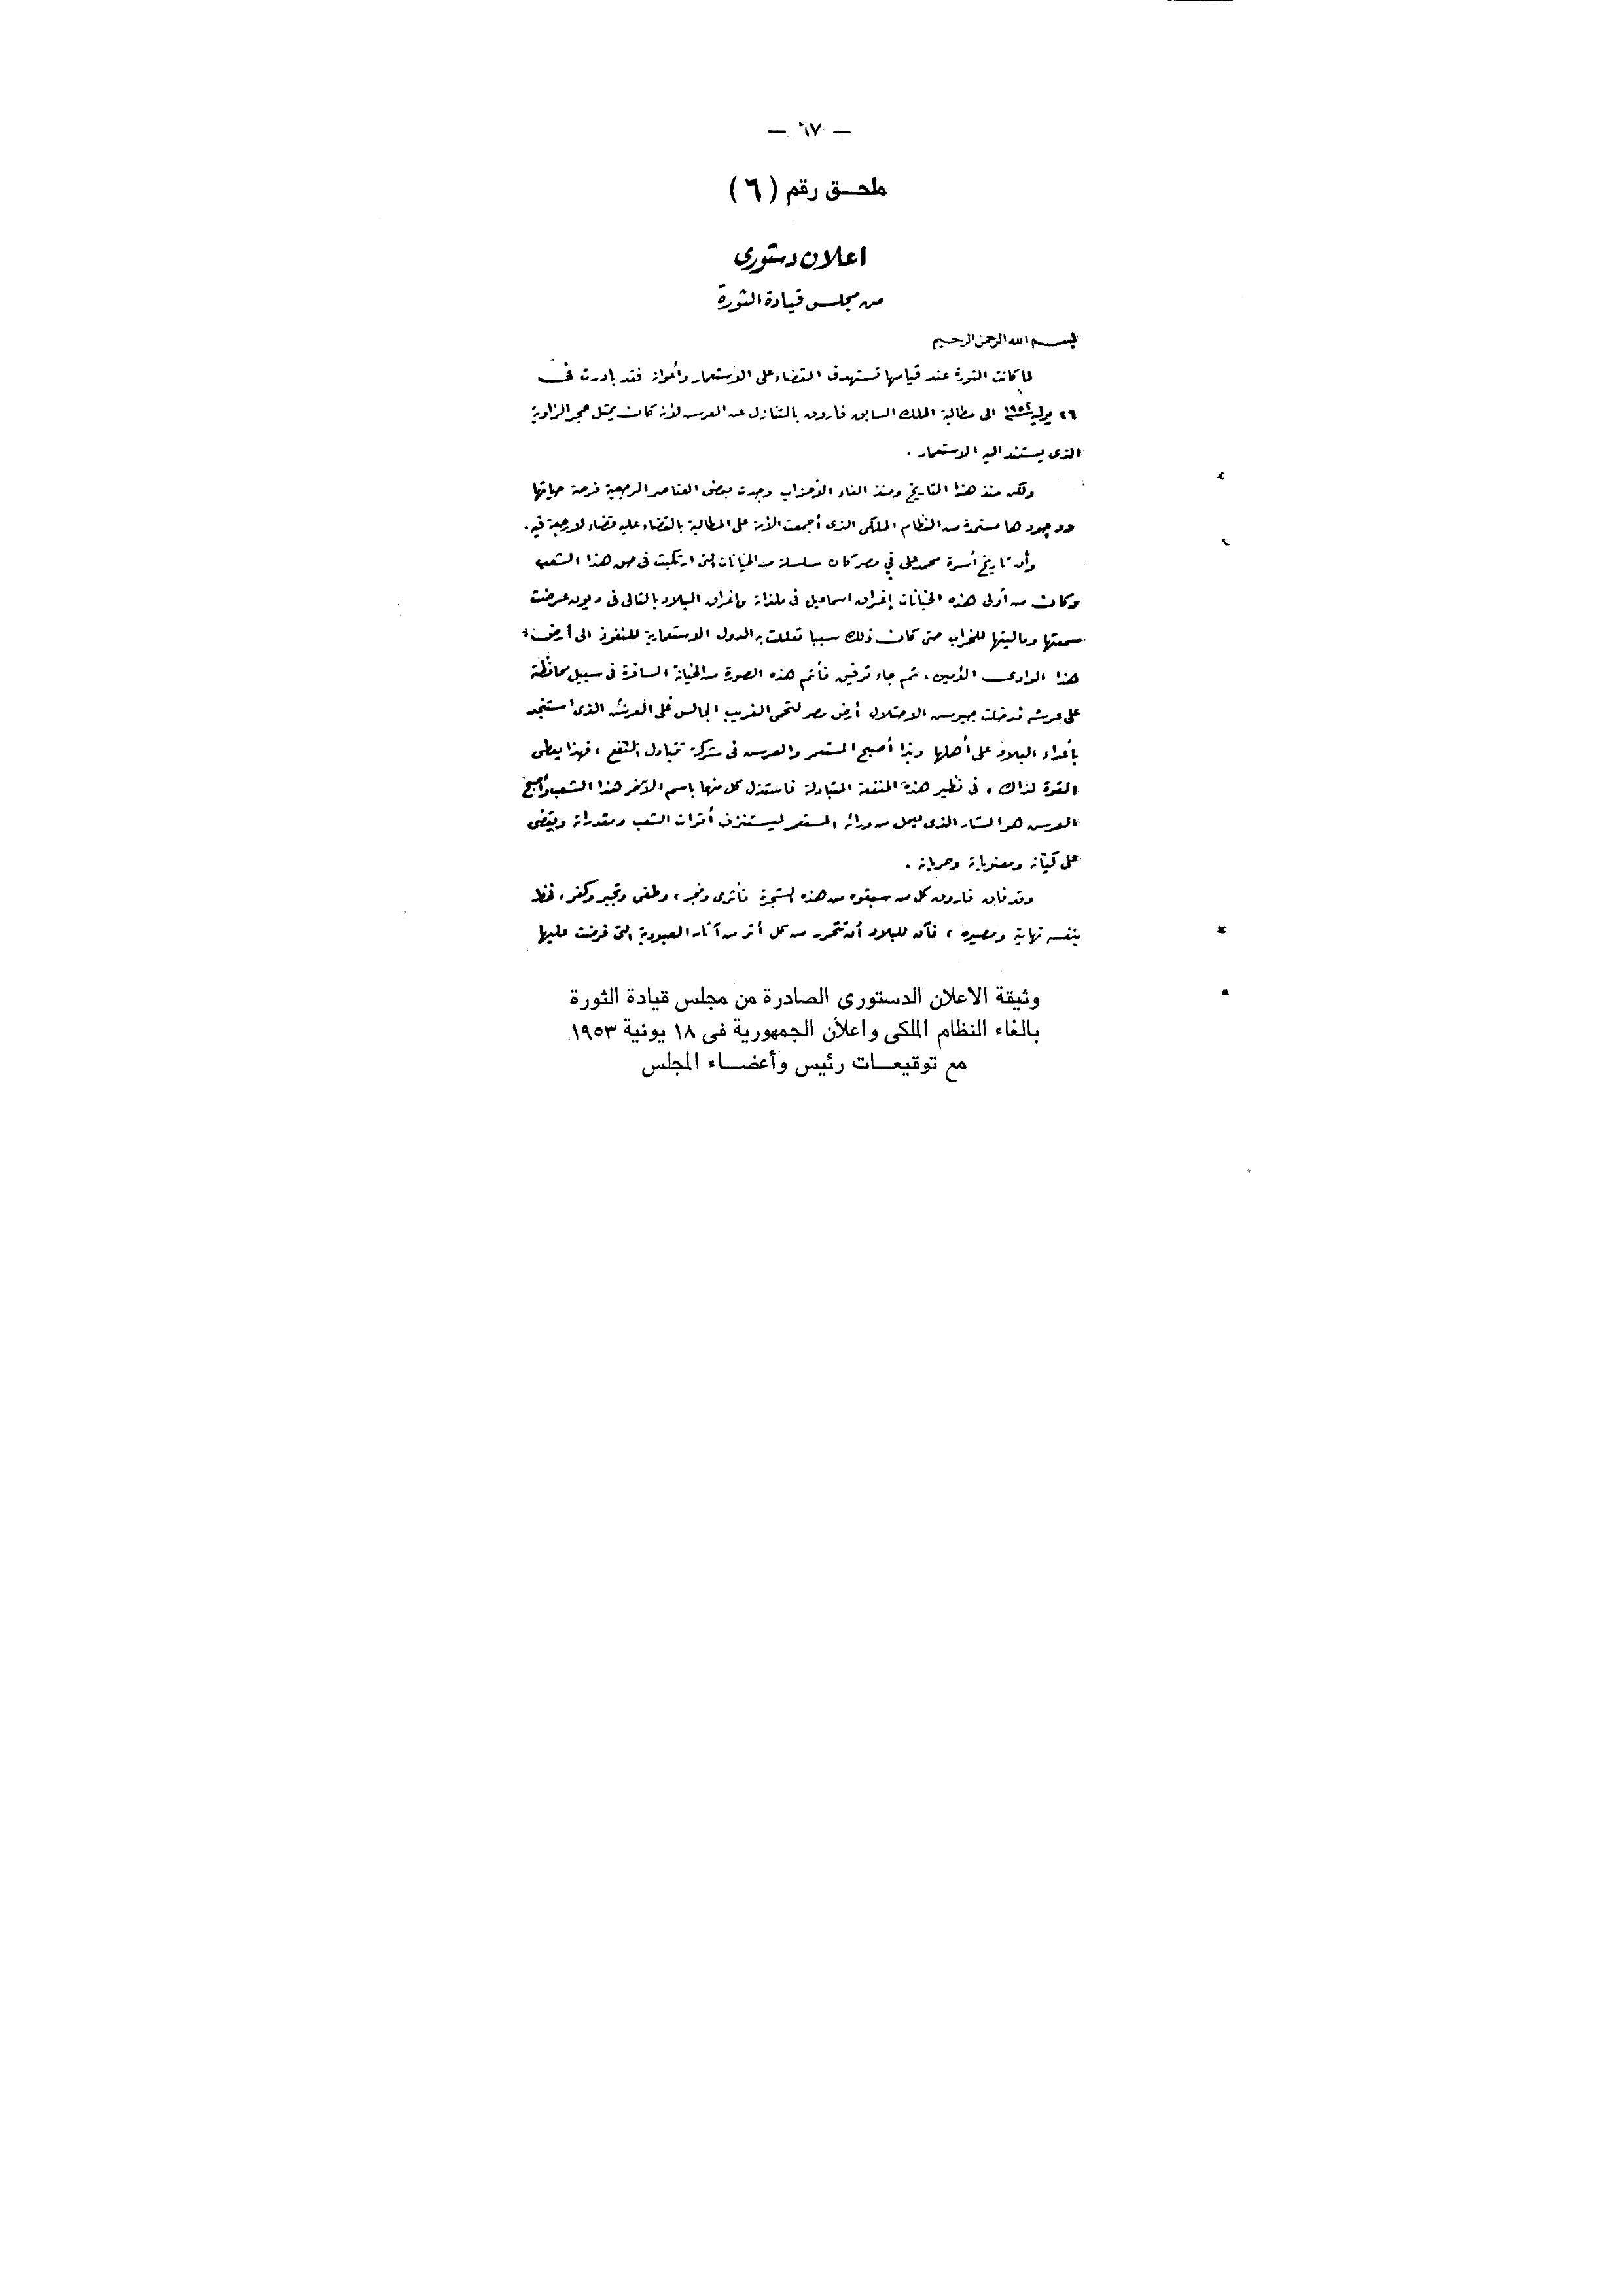 — ٦٧ —
ملحـــق رقم ( ٦ )
اعلان دستورى
من مجلس قيادة الثورة
بسم الله الرحمن الرحيم
لما كانت الثورة عند قيامها تستهدف القضاء على الاستعمار وأعوانه فقد بادرت فى
٢٦ يوليه سنة ١٩٥٢ الى مطالبة الملك السابق فاروق بالتنازل عن العرش لأنه كان يمثل حجر الزاوية
الذى يستند اليه الاستعمار .
ولكن منذ هذا التاريخ ومنذ الغاء الأحزاب وجدت بعض العناصر الرجعية فرصة حياتها
ووجودها مستمدة من النظام الملكى الذى أجمعت الأمة على المطالبة بالقضاء عليه قضاء لا رجعة فيه .
وأن تاريخ أسرة محمد على في مصر كان سلسلة من الخيانات التى ارتكبت فى حق هذا الشعب
وكانت من أولى هذه الخيانات إغراق اسماعيل فى ملذاته واغراق البلاد بالتالى فى ديون عرضت
سمعتها وماليتها للخراب حتى كان ذلك سببا تعللت به الدول الاستعمارية للنفوذ الى أرض
هذا الوادى الأمين ، ثم جاء توفيق فأتم هذه الصورة من الخيانة السافرة فى سبيل محافظته
على عرشه فدخلت جيوش الاحتلال أرض مصر لتحمى الغريب الجالس على العرش الذى استنجد
بأعداء البلاد على أهلها وبذا أصبح المستعمر والعرش فى شركة تتبادل النفع ، فهذا يعطى
القوة لذاك ، فى نظير هذه المنفعة المتبادلة فاستذل كل منهما باسم الآخر هذا الشعب وأصبح
العرش هو الستار الذى يعمل من ورائه المستعمر ليستنزف أقوات الشعب ومقدراته ويقضى
على كيانه ومعنوياته وحرياته .
وقد فاق فاروق كل من سبقوه من هذه الشجرة فأثرى وفجر ، وطغى وتجبر وكفر ، فخط
بنفسه نهايته ومصيره ، فآن للبلاد أن تتحرر من كل أثر من آثار العبودية التى فرضت عليها
وثيقة الاعلان الدستورى الصادرة من مجلس قيادة الثورة
بالغاء النظام الملكى واعلان الجمهورية فى ١٨ يونية ١٩٥٣
مع توقيعـــات رئيس وأعضـــاء المجلس